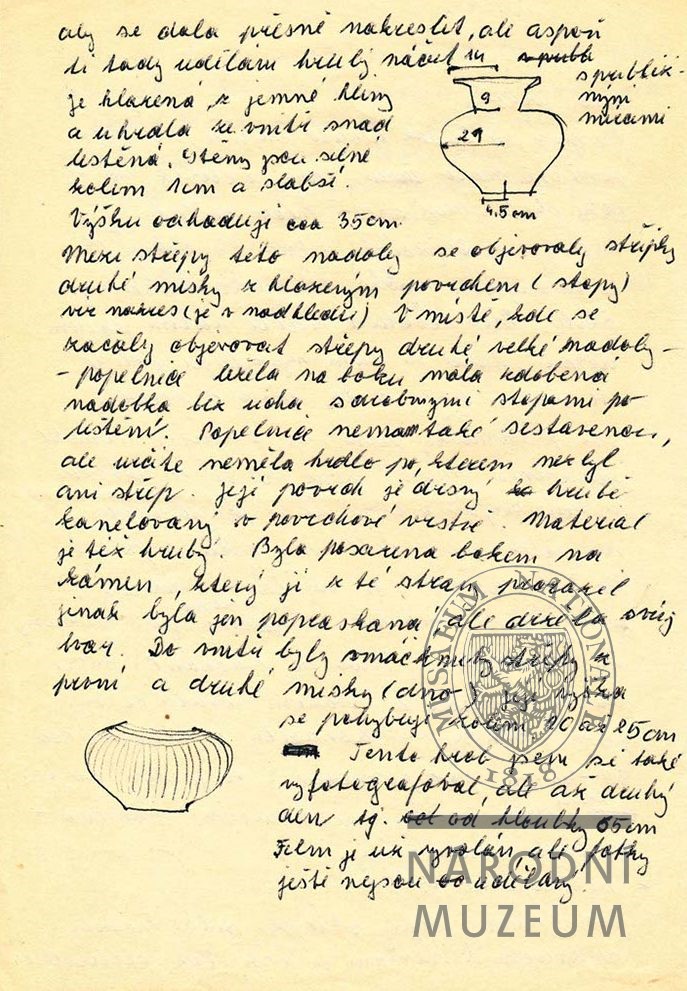 aby se dala přesně nakreslit, ale aspoň
ti tady udělám hrubý náčrt
s přibliž-
nými
mírami
14
9
29
4,5 cm
je hlazená, z jemné hlíny
a u hrdla ze vnitř snad
leštěná. Stěny jsou silné
kolem 1cm a slabší.
Výšku odhaduji cca 35cm.
Mezi střepy této nádoby se objevovaly střípky
druhé misky z hlazeným povrchem (stopy)
viz nákres (je v nadhledu) V místě, kde se
začaly objevovat střepy druhé velké nádoby -
- popelnice ležela na boku malá zdobená
nádobka bez ucha s drobnými stopami po
leštění. Popelnice nemam také sestavenou,
ale určitě neměla hrdlo po, kterem nezbyl
ani střep. Její povrch je drsný hrubě
kanelovaný v povrchové vrstvě. Material
je též hrubý. Byla posazena bokem na
kámen, který ji z té strany prorazil
jinak byla jen popraskaná, ale držela svůj
tvar. Do vnitř byly vmáčknuty střepy z
první a druhé misky (dno) její výška
se pohybuje kolem 20 až 25cm
Tento hrob jsem si také
vyfotografoval, ale až druhý
den tj. od hloubky 65cm
Film je už vyvolán, ale fotky
ještě nejsou udělány.
MUSAEUM NATIONALE
1818
NÁRODNÍ
MUZEUM